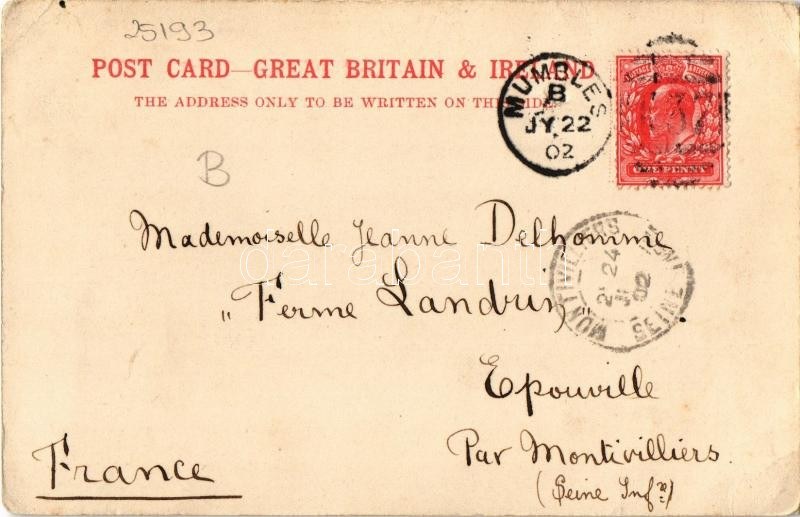 25193
POST CARD—GREAT BRITAIN & IRELAND
THE ADDRESS ONLY TO BE WRITTEN ON THIS SIDE
MUMBLES
B
JY 22
02
ONE PENNY
B
Mademoiselle Jeanne Delhomme
„Ferme Landrin"
Epouville
Par Montivilliers
(Seine Infre)
France
MONTIVILLIERS
24
02
SEINE
darabanth